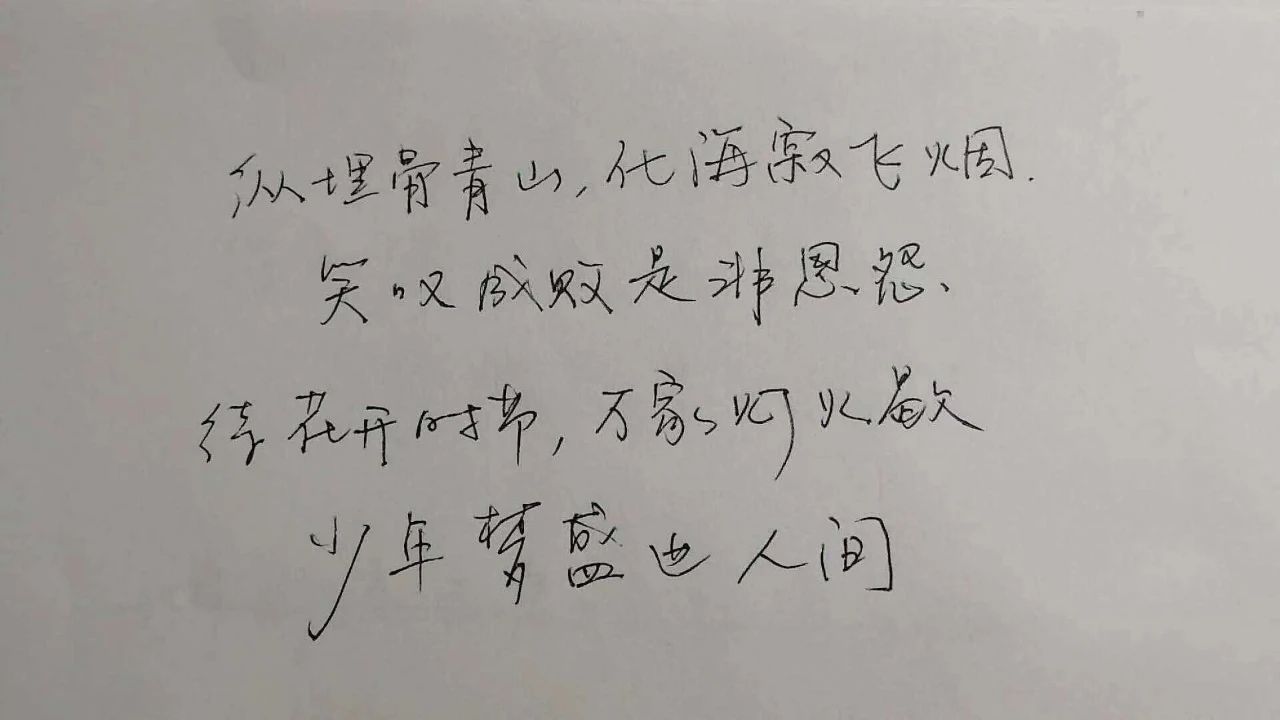 纵埋骨青山,化海寂飞烟.
笑叹成败是非恩怨、
待花开时节,万家灯火歇
少年梦盛世人间